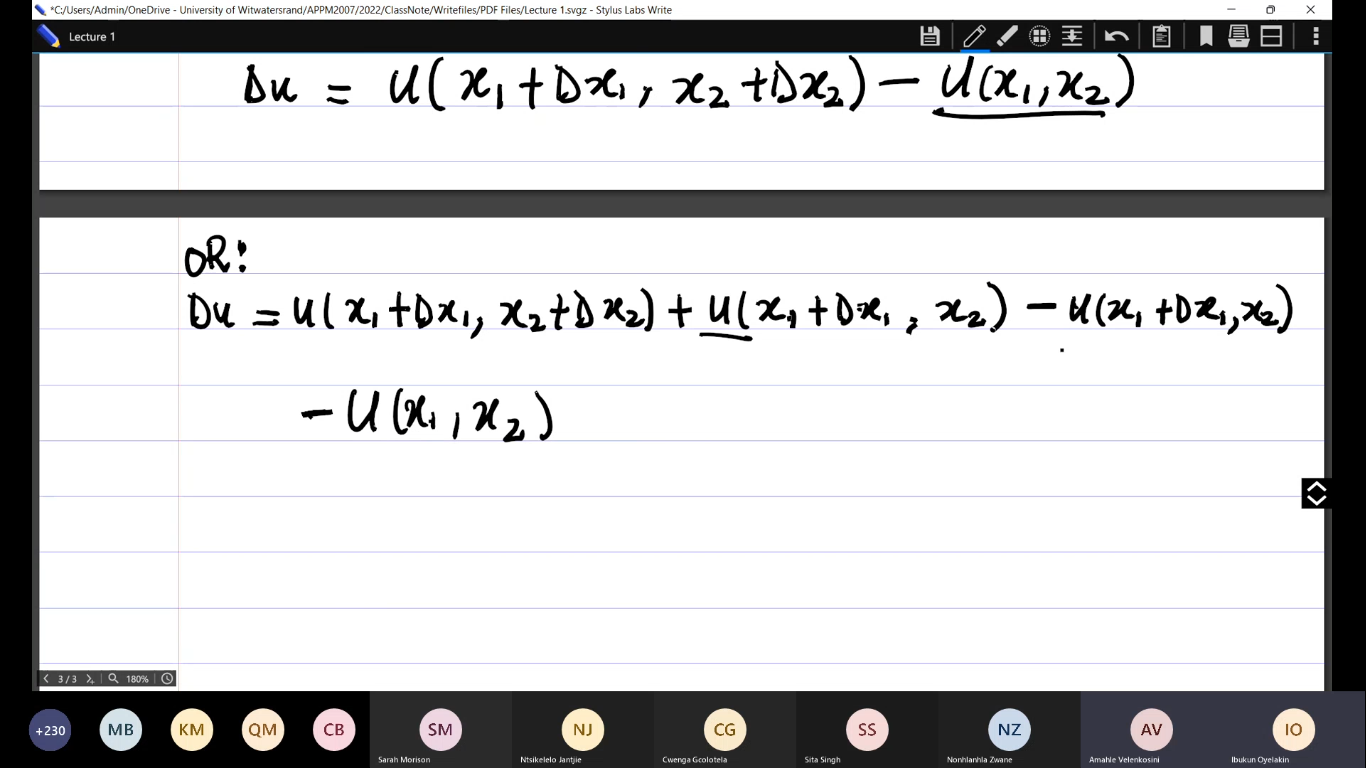 *C:/Users/Admin/OneDrive - University of Witwatersrand/APPM2007/2022/ClassNote/Writefiles/PDF Files/Lecture 1.svgz - Stylus Labs Write
Lecture 1
Du = U(x₁+Dx₁, x₂+Dx₂) - U(x₁,x₂)
OR:
Du = U(x₁+Dx₁, x₂+Dx₂) + U(x₁+Dx₁, x₂) - U(x₁+Dx₁,x₂)
- U(x₁,x₂)
3/3 180%
+230 MB KM QM CB SM NJ CG SS NZ AV IO
Sarah Morison Ntsikelelo Jantjie Cwenga Gcolotela Sita Singh Nonhlanhla Zwane Amahle Velenkosini Ibukun Oyelakin